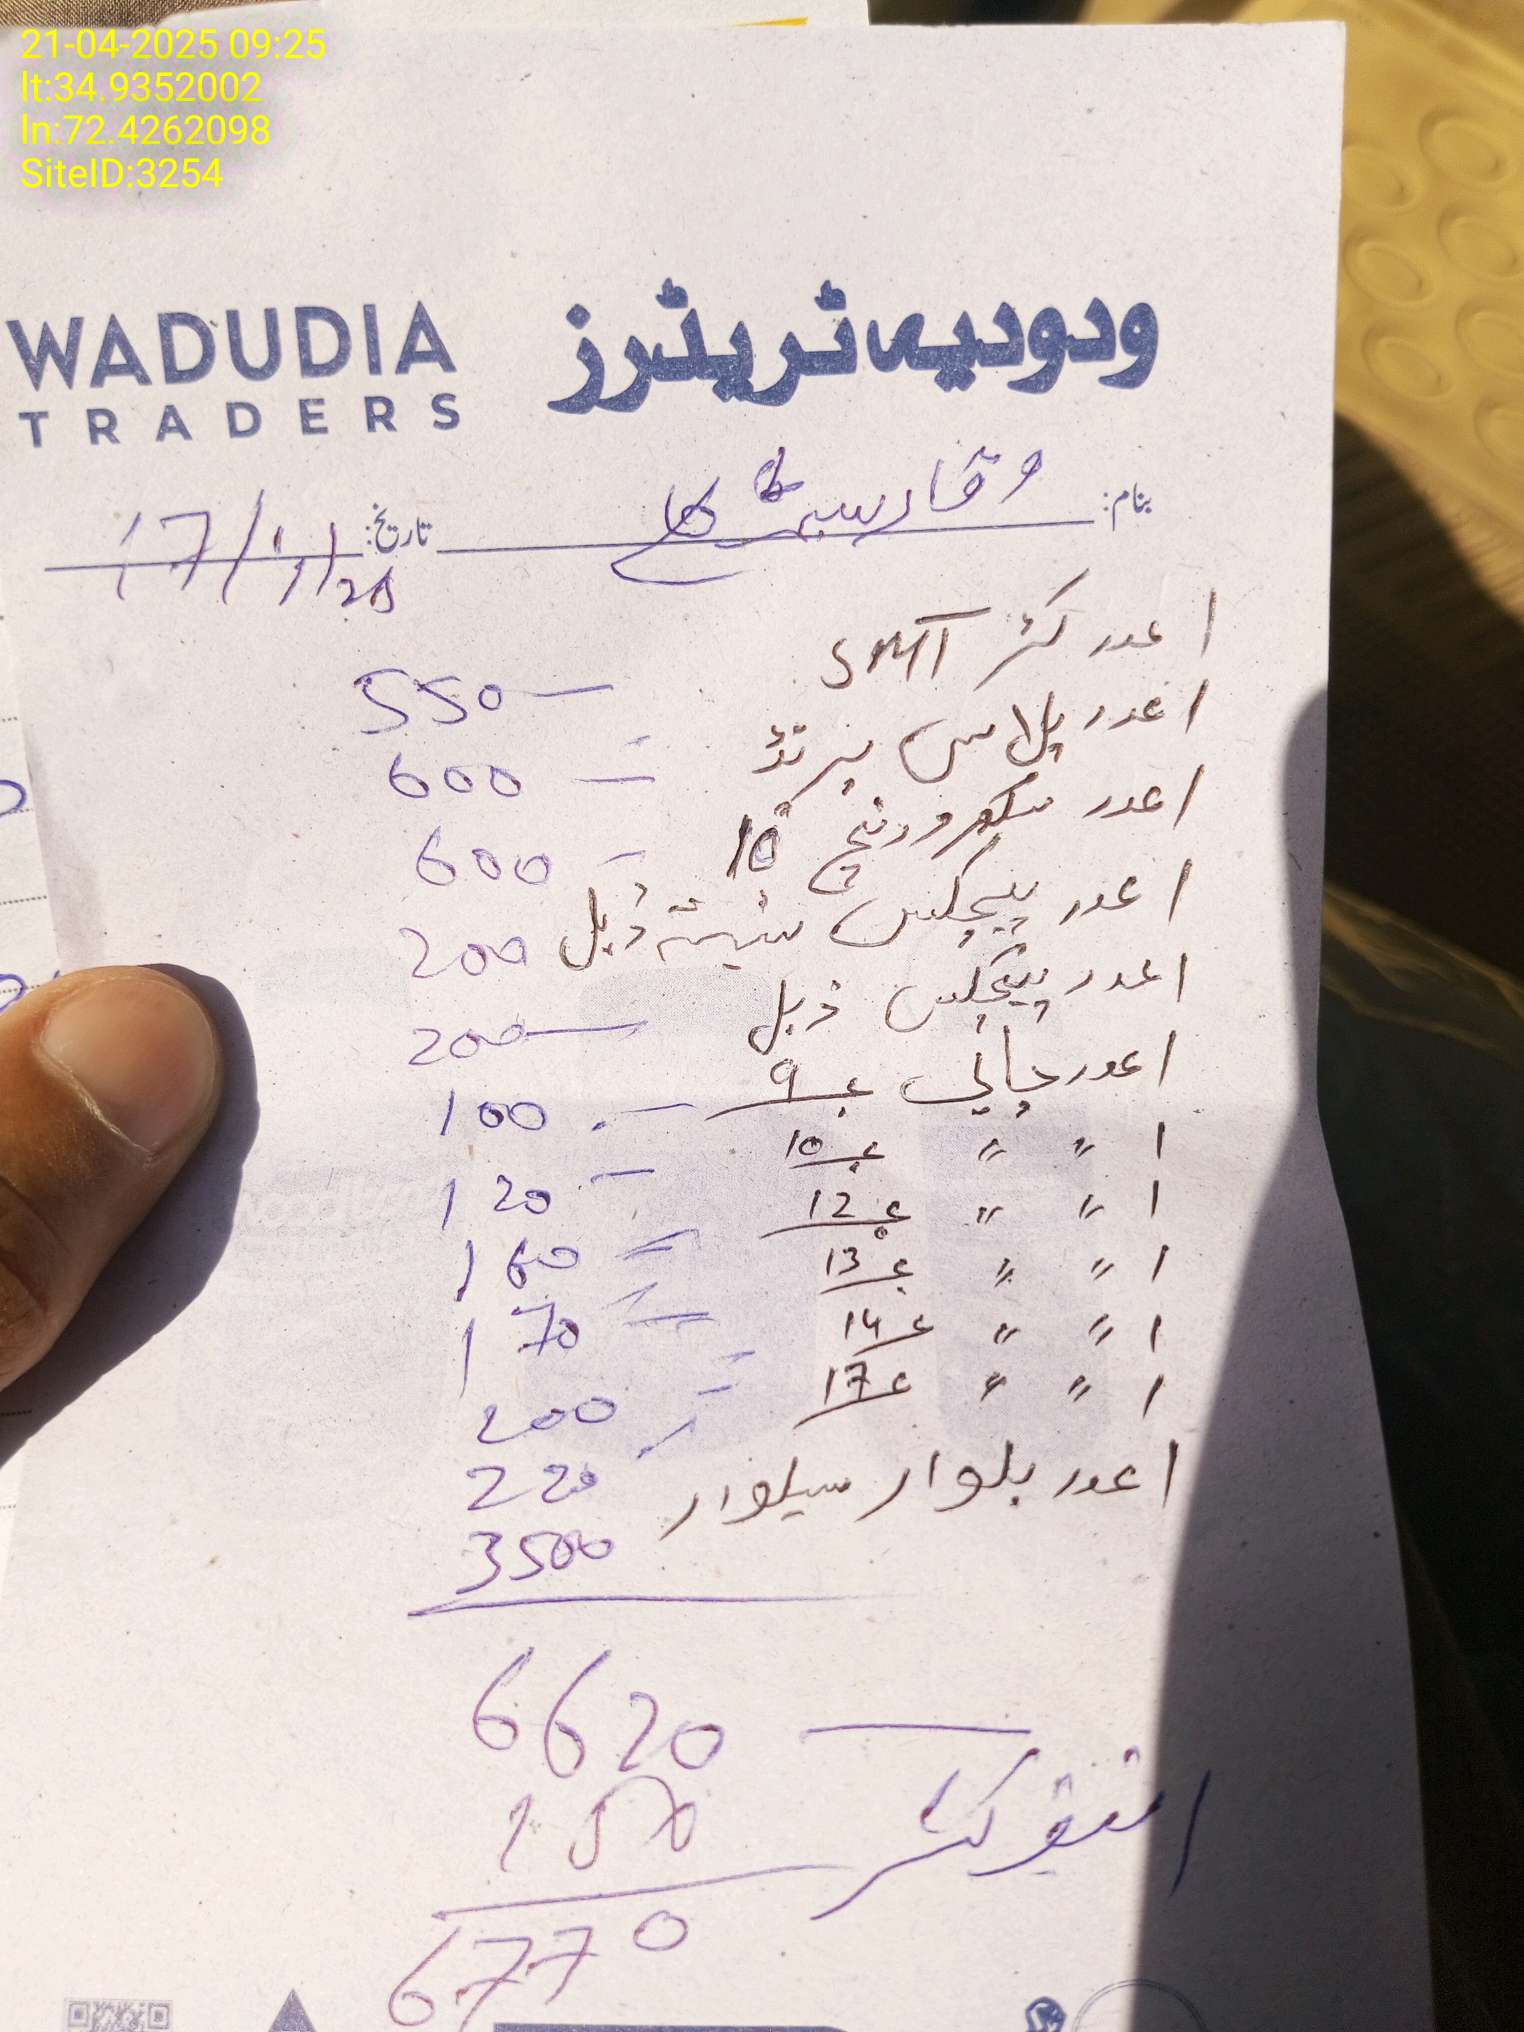 21-04-2025 09:25
lt:34.9352002
ln:72.4262098
SiteID:3254
WADUDIA TRADERS
ودودیہ ٹریڈرز
بنام: وقار
تاریخ: 17/1/25
1 عدد کٹر SMT 550
1 عدد پلاس 600
1 عدد سکرو رنچ 10" 600
1 عدد پیچکس ڈبل 200
1 عدد پیچکس ڈبل 200
1 عدد چابی 9 100
1 〃 〃 10 120
1 〃 〃 12 160
1 〃 〃 13 170
1 〃 〃 14 200
1 〃 〃 17 220
1 عدد بلوار سیلوار 3500
6620
1 کٹر 150
6770